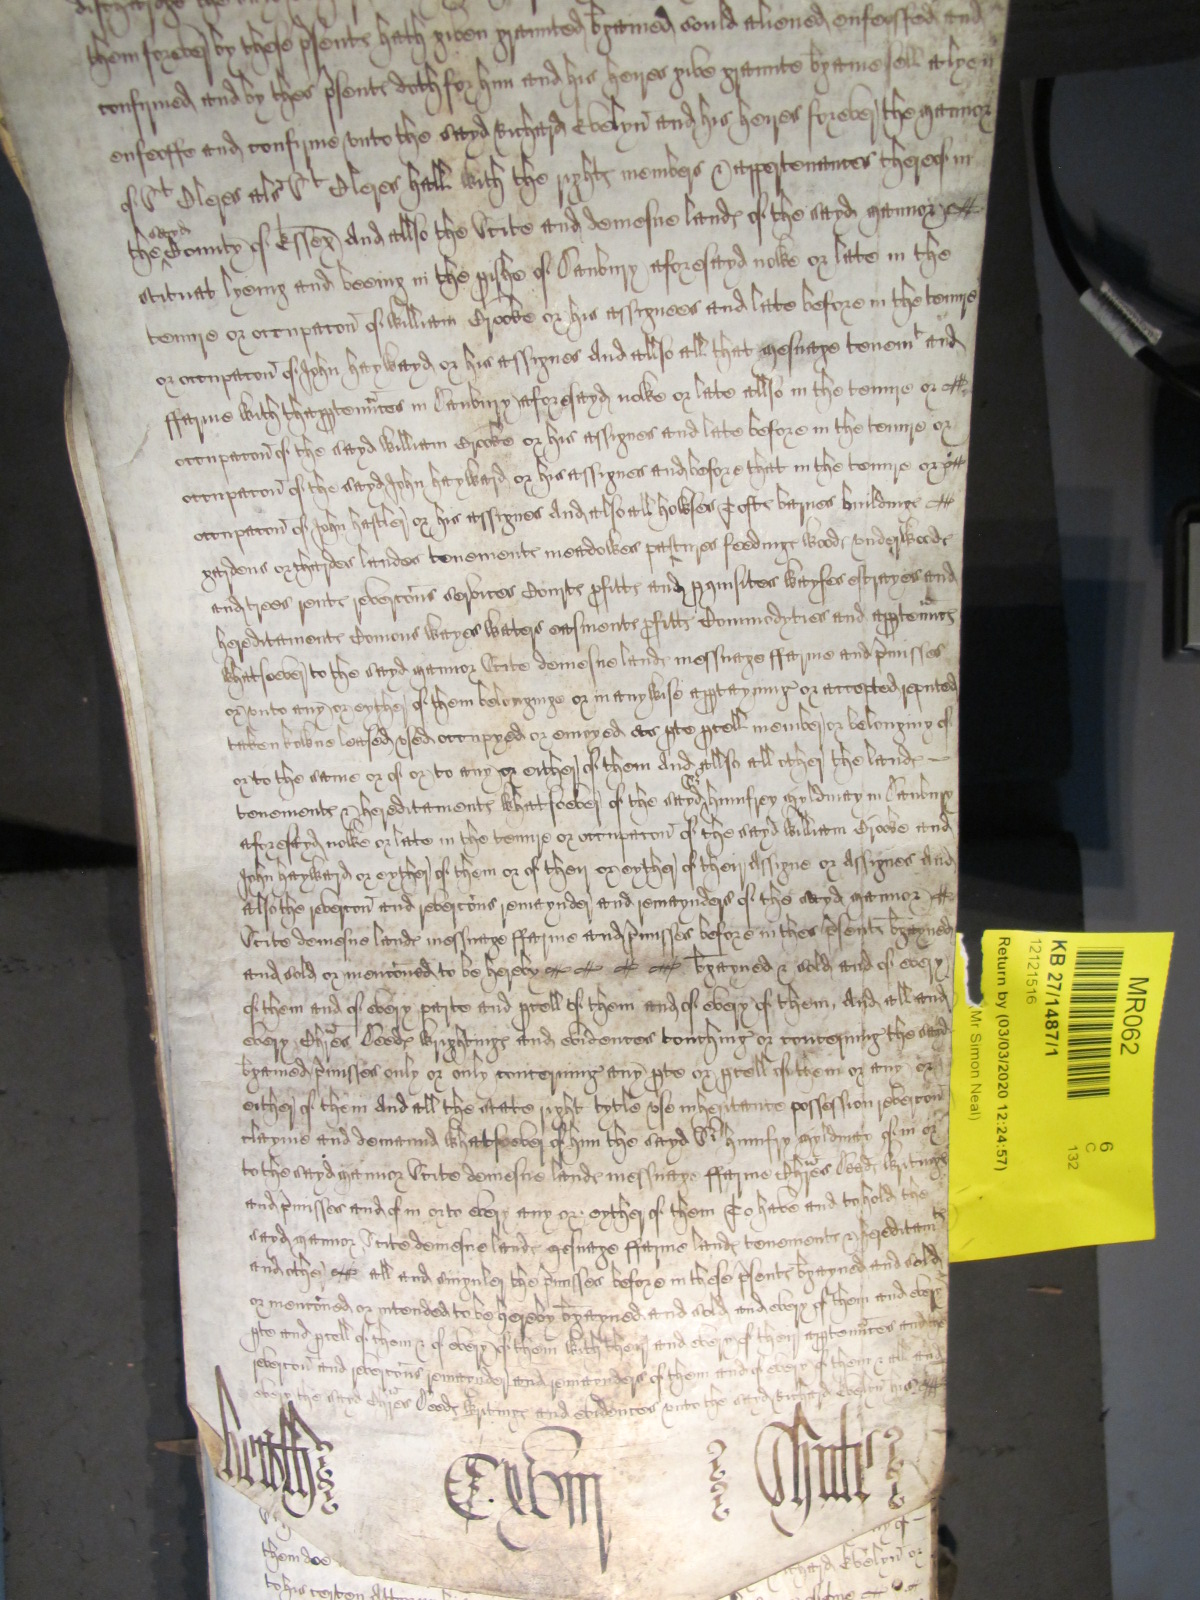 them forever by these psents hath given graunted bgained sould aliened enfeoffed and
confirmed and by thes psents doth for him and his heires give graunte bgaine sell alyen
enfeoffe and confirme unto the sayd Richard Evelyn and his heires forever the mannor
of St Oleres als St Oleres hall with the rights members & appertenances thereof in
the sayd County of Essex And allso the Scite and demesne lands of the sayd mannor
scituat lyeing and beeing in the pishe of Danbury aforesayd nowe or late in the
tenure or occupacon of William Crooke or his assignees and late before in the tenure
or occupacon of John Hayward or his assignes And allso all that mesuage tenemt and
ffarme with thapptennces in Danbury aforesayd nowe or late allso in the tenure or
occupacon of the sayd William Crooke or his assignes and late before in the tenure or
occupacon of the sayd John Hayward or his assignes and before that in the tenure or
occupacon of John or his assignes And also all howses Tofts barnes buildings
gardens orchardes landes tenements meadowes pastures feedings woods underwoods
and trees rents revercons services Courts pfitts and pquisites wayfes estrayes and
hereditaments Comons wayes waters easments pfitts Commodyties and apptenncs
whatsoever to the sayd mannor Scite demesne lands messuage ffarme and pmisses
or unto any or eyther of them belonginge or in anywise apptayning or accepted reputed
taken knowne leased used occupyed or enioyed as pte pcell member or belonging of
or to the same or of or to any or either of them And allso all other the lands
tenements & hereditaments whatsoever of the sayd Sr Humfrey Myldmay in Danbury
aforesayd nowe or late in the tenure or occupacon of the sayd William Crooke and
John Hayward or eyther of them or of their or eyther of their Assigne or Assignes And
also the revercon and revercons remaynder and remaynders of the sayd mannor
Scite demesne lands messuage ffarme and pmisses before in thes psents bgayned
and sold or menconed to be hereby bgayned & sold and of every
of them and of every parte and pcell of them and of every of them, And all and
every Chres Deeds wrightings and evidences touching or concerning the sayd
bgained pmisses only or only concerning any pte or pcell of them or any or
either of them And all the state right tytle use inheritance possession revercon
clayme and demaund whatsoever of him the sayd Sr Humfry Myldmay of in or
to the sayd mannor Scite demesne lands messuage ffarme Chres Deeds writings
and pmisses and of in or to every any or eyther of them To have and to hold the
sayd mannor Scite demesne lands mesuage ffarme lands tenements & hereditamts
and other all and singuler the pmisses before in these psents bgayned and sold
or menconed or intended to be hereby bgayned and sold and every of them and every
pte and pcell of them & of every of them with their and every of their apptennces and the
revercon and revercons remaynder and remaynders of them and of every of them & all and
every the sayd Chres Deeds writings and evidences unto the sayd Richard Evelyn his
MR062
6
C
132
KB 27/1487/1
12121516
Return by (03/03/2020 12:24:57)
Mr Simon Neal)
them doe
Evelyn or
to his certen